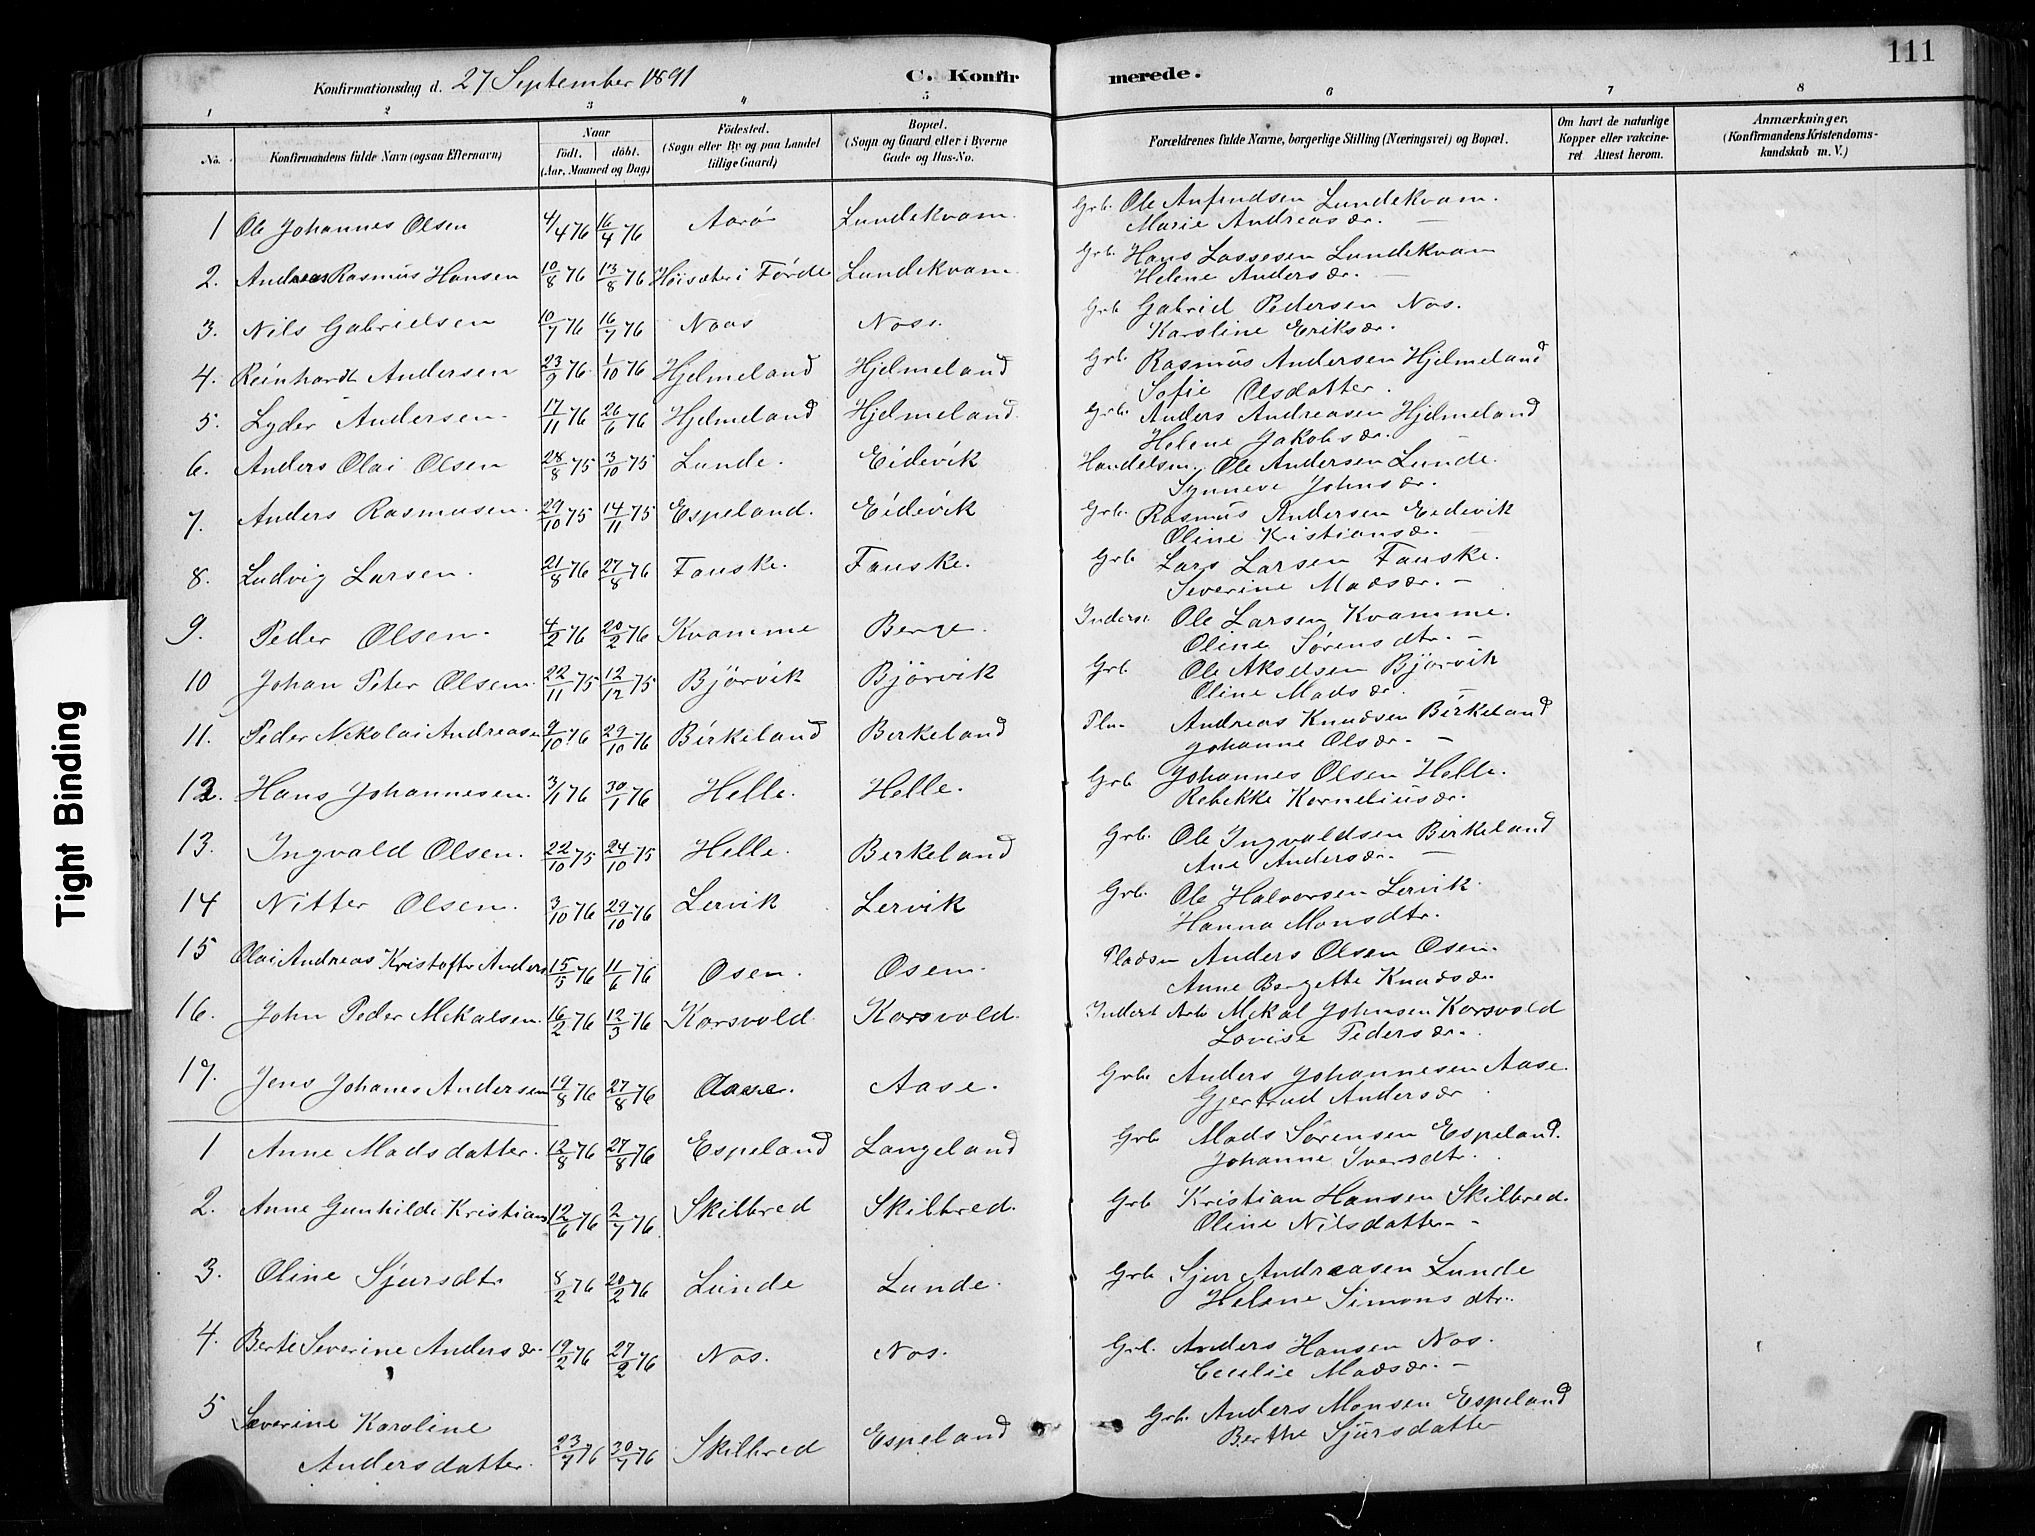 111
Konfirmationsdag d. 27 September 1891
C. Konfirmerede.
1 2 3 4 5 6 7 8
No. Konfirmandens fulde Navn (ogsaa Efternavn) Naar födt. döbt. (Aar, Maaned og Dag) Födested. (Sogn eller By og paa Landet tillige Gaard) Bopæl. (Sogn og Gaard eller i Byerne Gade og Hus-No. Forældrenes fulde Navne, borgerlige Stilling (Næringsvei) og Bopæl. Om havt de naturlige Kopper eller vakcineret Attest herom. Anmærkninger. (Konfirmandens Kristendomskundskab m. V.)
1 Ole Johannes Olsen 4/4 76 16/4 76 Aarö Lundekvam. Grb. Ole Anfindsen Lundekvam.
Marie Andreasdr. —
2. Andreas Rasmus Hansen 10/8 76 13/8 76 Höisæter i Förde Lundekvam Grb. Hans Lassesen Lundekvam
Helene Andersdr. —
3. Nils Gabrielsen 10/7 76 16/7 76 Naas Nos. Grb Gabriel Pedersen Nos.
Karoline Eriksdr.
4. Reinhardt Andersen 23/9 76 1/10 76 Hjelmeland Hjelmeland Grb. Rasmus Andersen Hjelmeland
Sofie Olsdatter.
5. Lyder Andersen. 17/11 76 26/6 76 Hjelmeland Hjelmeland. Grb. Anders Andreasen Hjelmeland
Helene Jakobsdr.
6. Anders Olai Olsen 28/8 75 3/10 75 Lunde. Eidevik Handelsm. Ole Andersen Lunde.
Synneve Johnsdr.
7. Anders Rasmusen. 29/10 75 14/11 75 Espeland. Eidevik Grb. Rasmus Andersen Eidevik
Oline Kristiansdr. —
8. Ludvig Larsen. 21/8 76 27/8 76 Fauske. Fauske. Grb Lars Larsen Fauske.
Severine Madsdr. —
9. Peder Olsen. 4/2 76 20/2 76 Kvamme Berge. Inderst Ole Larsen Kvamme.
Oline Sörensdtr. —
10 Johan Peter Olsen. 22/11 75 12/12 75 Björvik Björvik Grb Ole Akselsen Björvik
Oline Madsdr. —
11. Peder Nikolai Andreasen 9/10 76 29/10 76 Birkeland Birkeland Andreas Knudsen Birkeland
Johanne Olsdr. —
12. Hans Johannesen. 3/1 76 30/1 76 Helle. Helle. Grb Johannes Olsen Helle.
Rebekke Korneliusdr.
13. Ingvald Olsen. 22/10 75 24/10 75 Helle. Birkeland Grb. Ole Ingvaldsen Birkeland
Ane Andersdr. —
14 Nitter Olsen. 3/10 76 29/10 76 Lervik Lervik Grb. Ole Halvorsen Lervik.
Hanna Monsdtr.
15 Olai Andreas Kristofer Anders 15/5 76 11/6 76 Osen. Osen. Pladsm Anders Olsen Osen.
Anne Bergette Knudsdr.
16. John Peder Mikalsen. 16/2 76 12/3 76 Korsvold Korsvold. Inderst Arb Mikal Johnsen Korsvold
Lovise Pedersdr.
17. Jens Johanes Andersen 19/8 76 27/8 76 Aase. Aase. Grb. Anders Johannesen Aase.
Gjertrud Andersdr
1 Anne Madsdatter. 12/8 76 27/8 76 Espeland Langeland Grb Mads Sörensen Espeland.
Johanne Iversdtr.
2. Anne Gunhilde Kristians 12/6 76 2/7 76 Skilbred Skilbred. Grb Kristian Hansen Skilbred.
Oline Nilsdatter —
3. Oline Sjursdtr 8/2 76 20/2 76 Lunde Lunde. Grb Sjur Andreasen Lunde
Helene Simonsdtr.
4. Berte Severine Andersdr. 19/2 76 27/2 76 Nos. Nos. Grb. Anders Hansen Nos.
Cecilie Madsdr. —
5 Severine Karoline
Andersdatter. 23/7 76 30/7 76 Skilbred Espeland Grb. Anders Monsen Espeland
Berthe Sjursdatter
Tight Binding